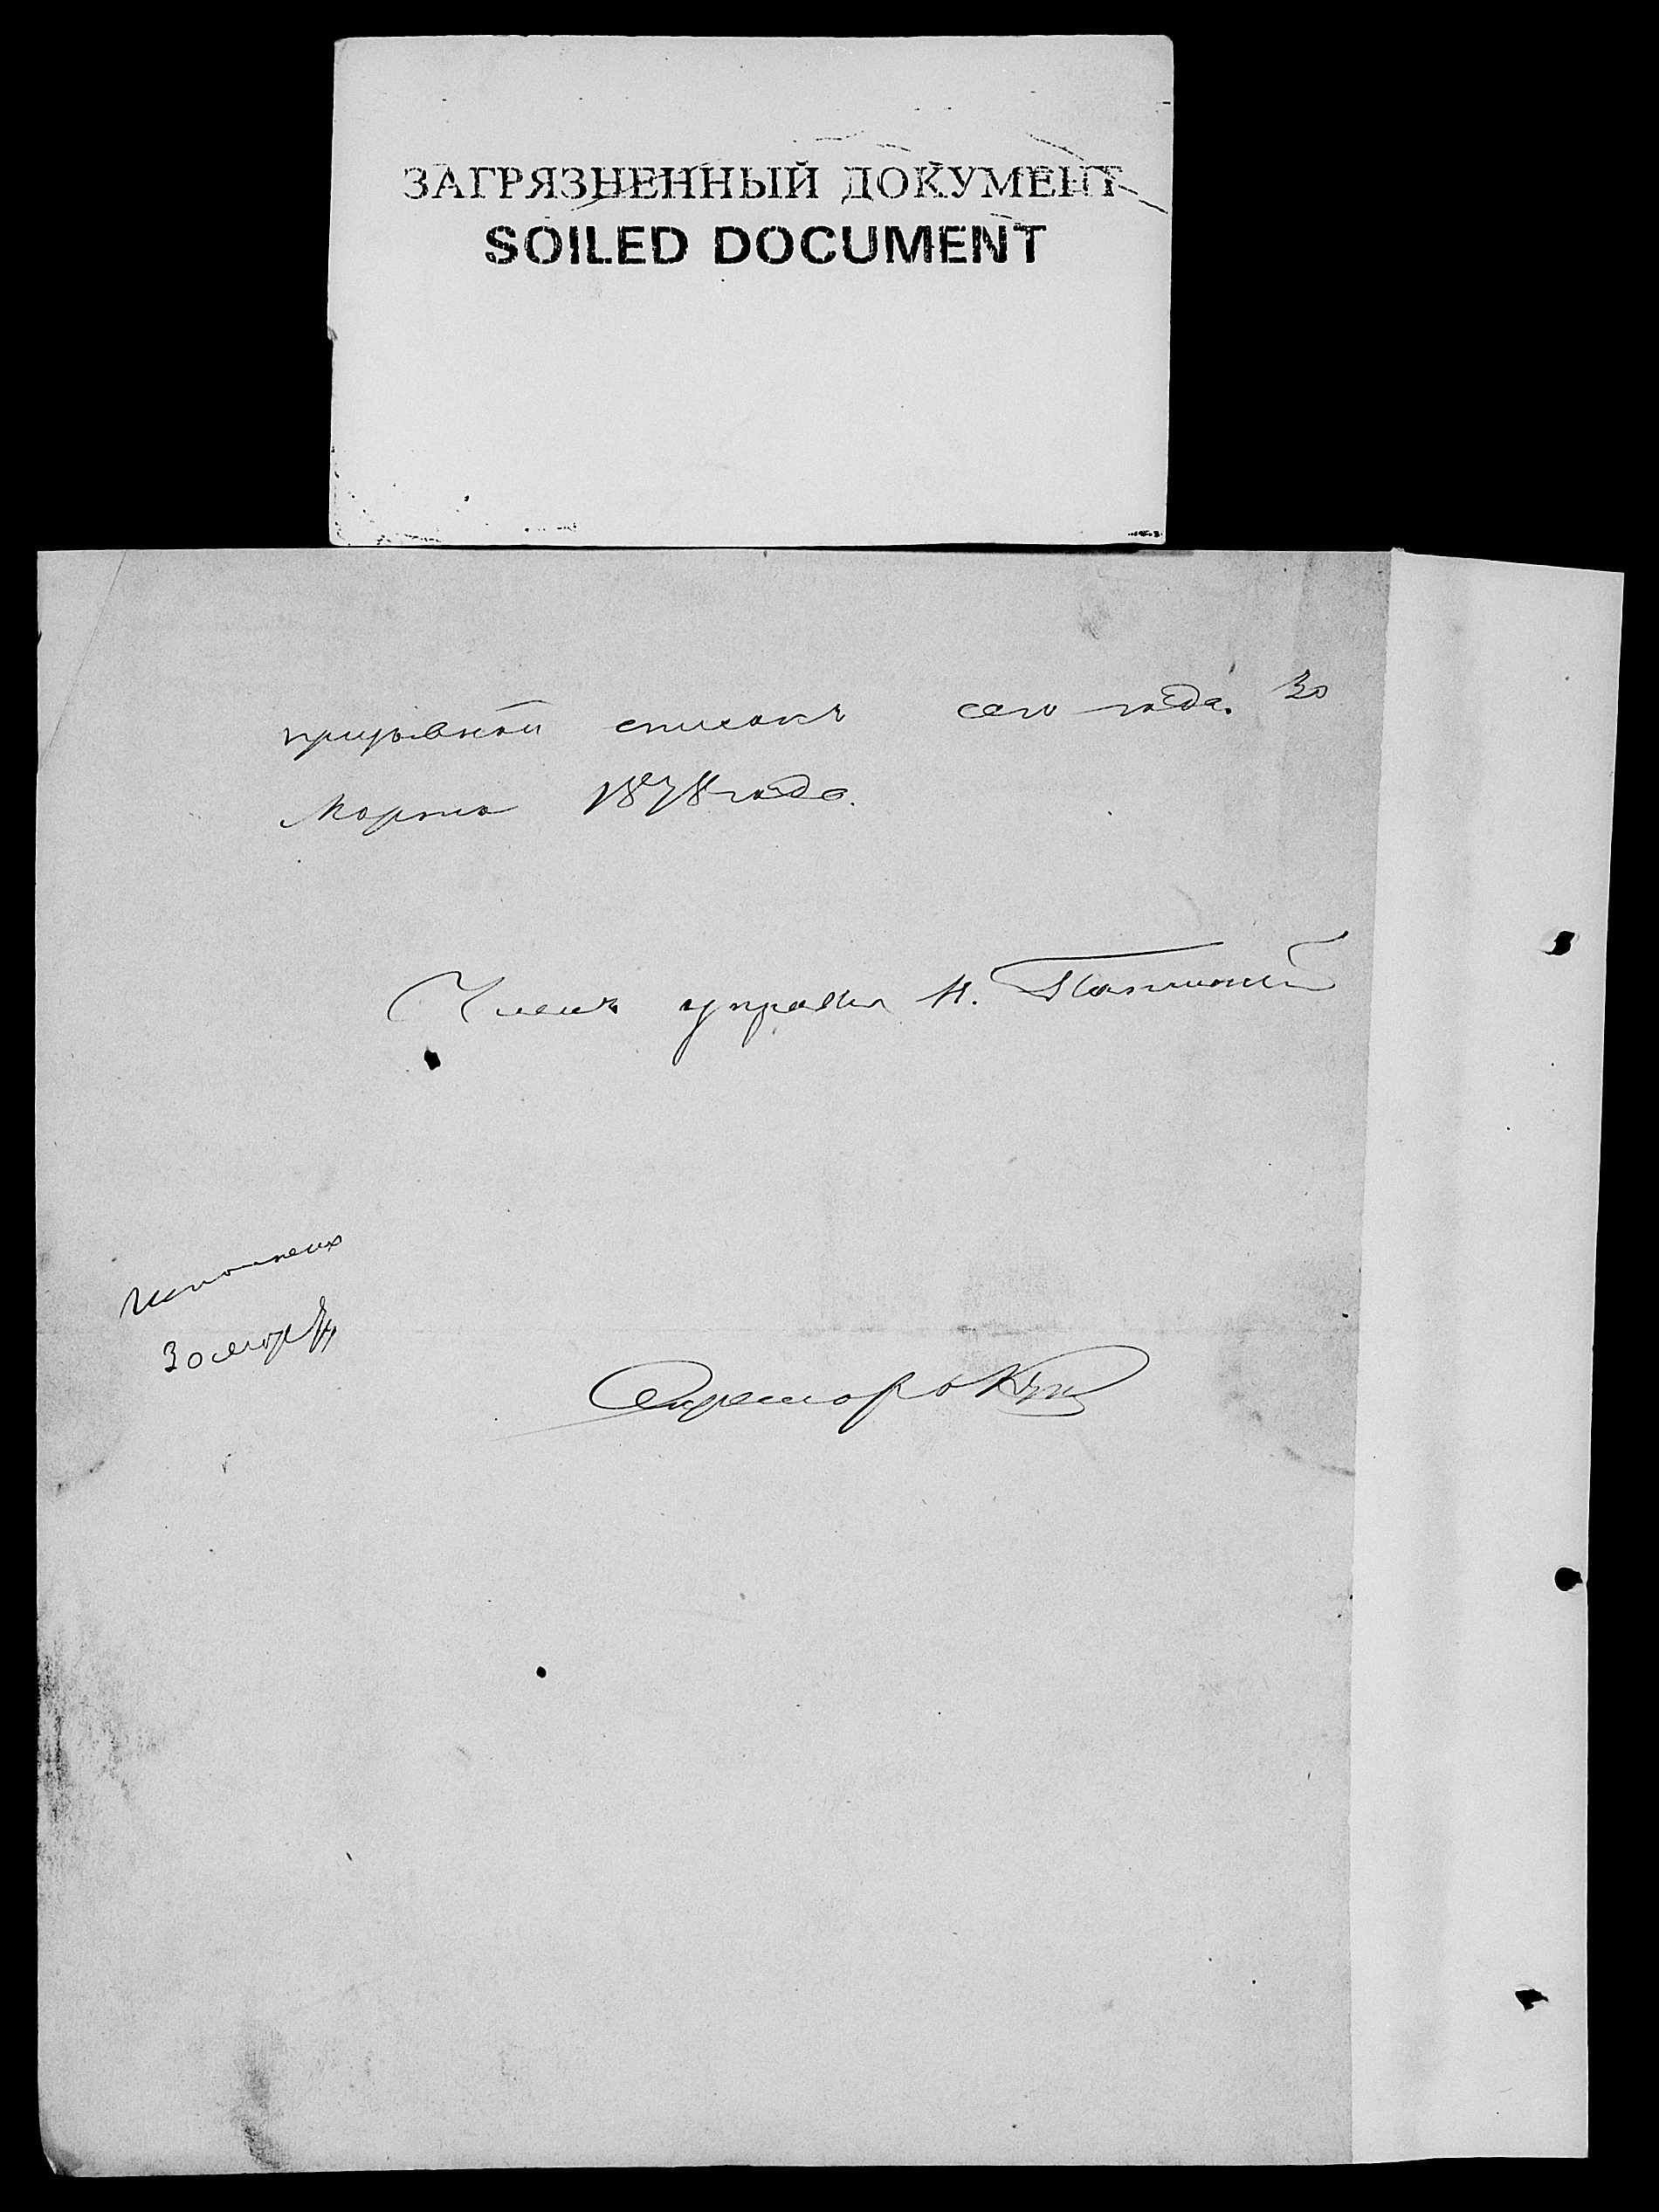 ЗАГРЯЗНЕННЫЙ ДОКУМЕНТ
SOILED DOCUMENT
призывной списокъ сего года. 30
Марта 1878 года.
Членъ управы
30 март
Секретарь